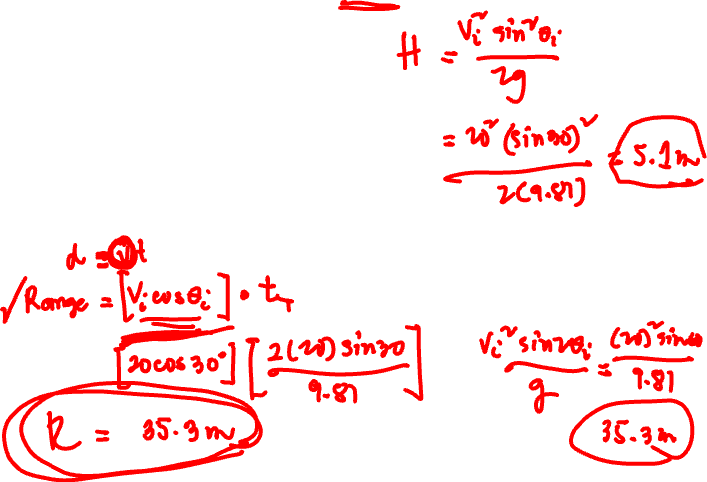 H = Vᵢ² sin²θᵢ / 2g
= 20² (sin30)² / 2(9.81) = 5.1m
d = vt
✓ Range = [Vᵢ cosθᵢ] • t_T
[20cos30°] [2(20) sin30 / 9.81]
R = 35.3m
Vᵢ² sin2θᵢ / g = (20)² sin60 / 9.81
35.3m